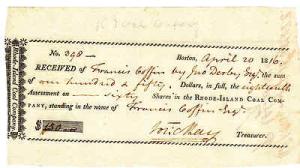 No. 398 — Boston, April 20 1816.
RECEIVED of Francis Coffin by Jno Derby Esq. the sum
of one hundred & fifty Dollars, in full, the eighteenth
Assessment on sixty Shares in the RHODE-ISLAND COAL COM-
PANY, standing in the name of Francis Coffin Esq.
$150
Treasurer.
Rhode-Island Coal Company,
Assessment